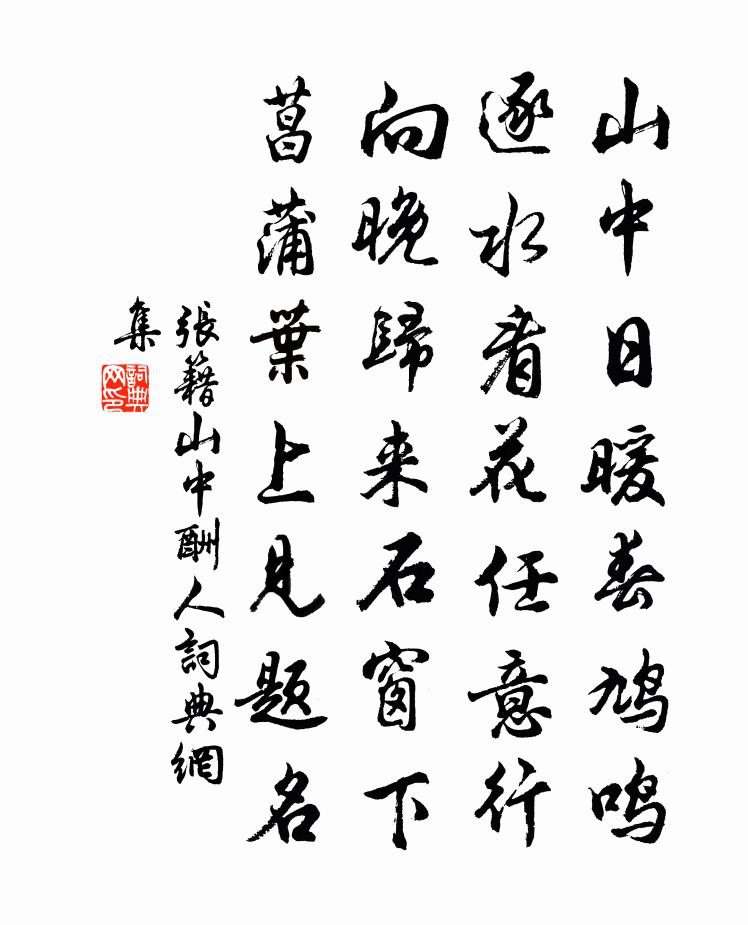 山中日暖春鸠鸣
逐水看花任意行
向晚归来石窗下
菖蒲葉上见题名
張籍山中酬人詞典網
集
詞典
网印